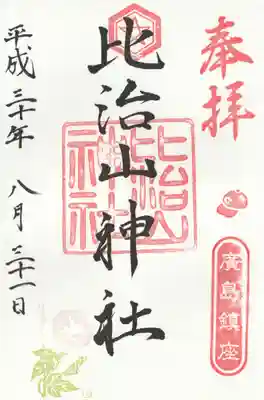 奉拝
廣島鎮座
比治山神社
比治山神社
平成三十年 八月 三十一日